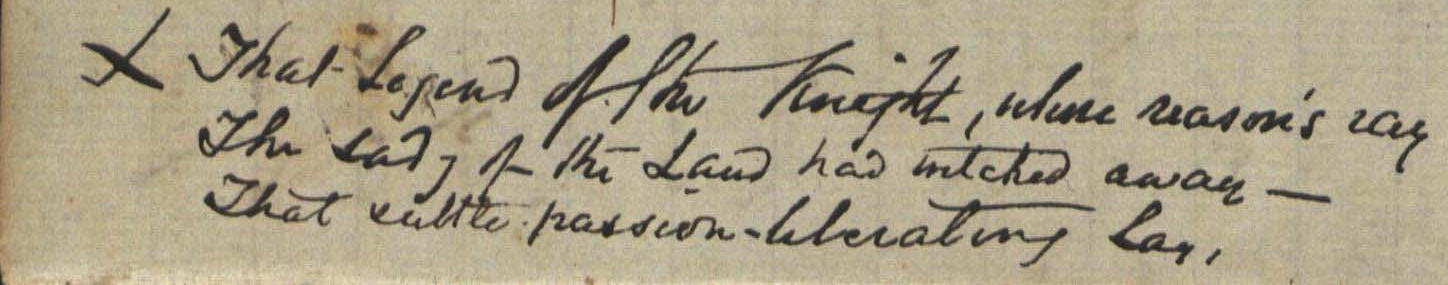 X That Legend of the Knight, whose reason's ray
The Lady of the Land had witched away —
That subtle passion-liberating Lay,